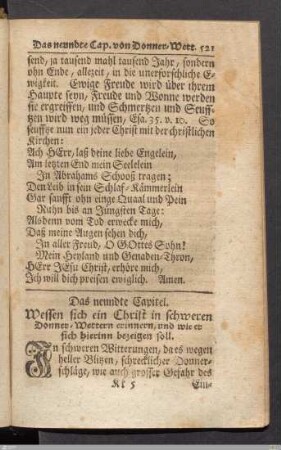 Das neundte Cap. von Donner-Wett. 521
send, ja tausend mahl tausend Jahr, sondern
ohn Ende, allezeit, in die unerforschliche E-
wigkeit. Ewige Freude wird über ihrem
Haupte seyn, Freude und Wonne werden
sie ergreiffen, und Schmertzen und Seuff-
tzen wird weg müssen, Esa. 35. v. 10. So
seufftze nun ein jeder Christ mit der christlichen
Kirchen:
Ach HErr, laß deine liebe Engelein,
Am letzten End mein Seelelein
In Abrahams Schooß tragen;
Den Leib in sein Schlaf-Kämmerlein
Gar sanfft ohn einge Quaal und Pein
Ruhn bis an Jüngsten Tage:
Alsdenn vom Tod erwecke mich,
Daß meine Augen sehen dich,
In aller Freud, O GOttes Sohn!
Mein Heyland und Genaden-Thron,
HErr JEsu Christ, erhöre mich,
Ich will dich preisen ewiglich. Amen.
Das neundte Capitel.
Wessen sich ein Christ in schweren
Donner-Wettern erinnern, und wie er
sich hierinn bezeigen soll.
In schweren Witterungen, da es wegen
heller Blitzen, schrecklicher Donner-
schläge, wie auch grosser Gefahr des
Kk 5 Ein-